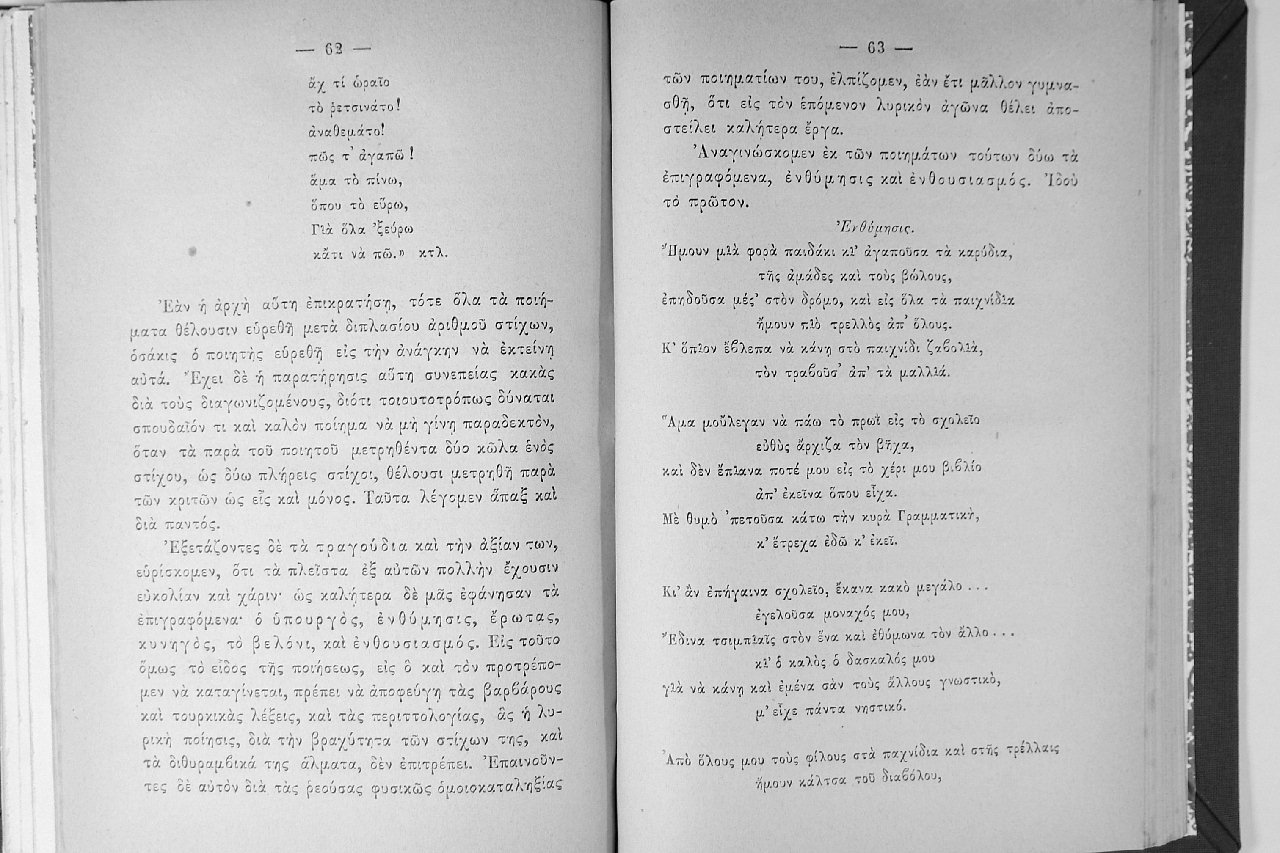 — 62 —
ἄχ τί ὡραῖο
τὸ ῥετσινάτο!
ἀναθεμάτο!
πῶς τ' ἀγαπῶ!
ἅμα τὸ πίνω,
ὅπου τὸ εὕρω,
Γιὰ ὅλα 'ξεύρω
κᾶτι νὰ πῶ.» κτλ.
Ἐὰν ἡ ἀρχὴ αὕτη ἐπικρατήσῃ, τότε ὅλα τὰ ποιή-
ματα θέλουσιν εὑρεθῆ μετὰ διπλασίου ἀριθμοῦ στίχων,
ὁσάκις ὁ ποιητὴς εὑρεθῇ εἰς τὴν ἀνάγκην νὰ ἐκτείνῃ
αὐτά. Ἔχει δὲ ἡ παρατήρησις αὕτη συνεπείας κακὰς
διὰ τοὺς διαγωνιζομένους, διότι τοιουτοτρόπως δύναται
σπουδαῖόν τι καὶ καλὸν ποίημα νὰ μὴ γίνῃ παραδεκτὸν,
ὅταν τὰ παρὰ τοῦ ποιητοῦ μετρηθέντα δύο κῶλα ἑνὸς
στίχου, ὡς δύω πλήρεις στίχοι, θέλουσι μετρηθῆ παρὰ
τῶν κριτῶν ὡς εἷς καὶ μόνος. Ταῦτα λέγομεν ἅπαξ καὶ
διὰ παντός.
Ἐξετάζοντες δὲ τὰ τραγούδια καὶ τὴν ἀξίαν των,
εὑρίσκομεν, ὅτι τὰ πλεῖστα ἐξ αὐτῶν πολλὴν ἔχουσιν
εὐκολίαν καὶ χάριν· ὡς καλήτερα δὲ μᾶς ἐφάνησαν τὰ
ἐπιγραφόμενα· ὁ ὑπουργὸς, ἐνθύμησις, ἔρωτας,
κυνηγὸς, τὸ βελόνι, καὶ ἐνθουσιασμός. Εἰς τοῦτο
ὅμως τὸ εἶδος τῆς ποιήσεως, εἰς ὃ καὶ τὸν προτρέπο-
μεν νὰ καταγίνεται, πρέπει νὰ ἀποφεύγῃ τὰς βαρβάρους
καὶ τουρκικὰς λέξεις, καὶ τὰς περιττολογίας, ἃς ἡ λυ-
ρικὴ ποίησις, διὰ τὴν βραχύτητα τῶν στίχων της, καὶ
τὰ διθυραμβικά της ἅλματα, δὲν ἐπιτρέπει. Ἐπαινοῦν-
τες δὲ αὐτὸν διὰ τὰς ῥεούσας φυσικῶς ὁμοιοκαταληξίας
— 63 —
τῶν ποιηματίων του, ἐλπίζομεν, ἐὰν ἔτι μᾶλλον γυμνα-
σθῇ, ὅτι εἰς τὸν ἑπόμενον λυρικὸν ἀγῶνα θέλει ἀπο-
στείλει καλήτερα ἔργα.
Ἀναγινώσκομεν ἐκ τῶν ποιημάτων τούτων δύω τὰ
ἐπιγραφόμενα, ἐνθύμησις καὶ ἐνθουσιασμός. Ἰδοὺ
τὸ πρῶτον.
Ἐνθύμησις.
Ἤμουν μιὰ φορὰ παιδάκι κι' ἀγαποῦσα τὰ καρύδια,
τῆς ἀμάδες καὶ τοὺς βώλους,
ἐπηδοῦσα μές' στὸν δρόμο, καὶ εἰς ὅλα τὰ παιχνίδια
ἤμουν πιὸ τρελλὸς ἀπ' ὅλους.
Κ' ὅπιον ἔβλεπα νὰ κάνῃ στὸ παιχνίδι ζαβολιὰ,
τὸν τραβοῦσ' ἀπ' τὰ μαλλιά.
Ἅμα μοὔλεγαν νὰ πάω τὸ πρωῒ εἰς τὸ σχολεῖο
εὐθὺς ἄρχιζα τὸν βῆχα,
καὶ δὲν ἔπιανα ποτέ μου εἰς τὸ χέρι μου βιβλίο
ἀπ' ἐκεῖνα ὅπου εἶχα.
Μὲ θυμὸ 'πετοῦσα κάτω τὴν κυρὰ Γραμματικὴ,
κ' ἔτρεχα ἐδῶ κ' ἐκεῖ.
Κι' ἂν ἐπήγαινα σχολεῖο, ἔκανα κακὸ μεγάλο...
ἐγελοῦσα μοναχός μου,
Ἔδινα τσιμπιαῖς στὸν ἕνα καὶ ἐθύμωνα τὸν ἄλλο...
κι' ὁ καλὸς ὁ δασκαλός μου
γιὰ νὰ κάνῃ καὶ ἐμένα σὰν τοὺς ἄλλους γνωστικὸ,
μ' εἶχε πάντα νηστικό.
Ἀπὸ ὅλους μου τοὺς φίλους στὰ παχνίδια καὶ στῆς τρέλλαις
ἤμουν κάλτσα τοῦ διαβόλου,